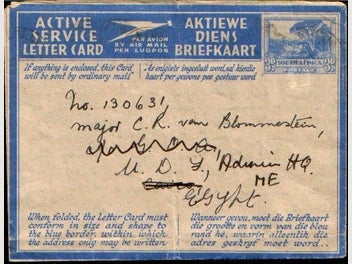 ACTIVE SERVICE LETTER CARD
PER AVION
BY AIR MAIL
PER LUGPOS
AKTIEWE DIENS BRIEFKAART
SOUTH AFRICA
If anything is enclosed, this Card
will be sent by ordinary mail
As enigiets ingesluit word, sal hierdie
kaart per gewone pos gestuur word
No. 130631,
Major C. R. van Blommestein,
U. D. F., Admin HQ.
ME
EGYPT.
When folded, the Letter Card must
conform in size and shape to
the blue border, within which
the address only may be written
Wanneer gevou, moet die Briefkaart
die grootte en vorm van die blou
rand hê, waarin alleenlik die
adres geskryf moet word.